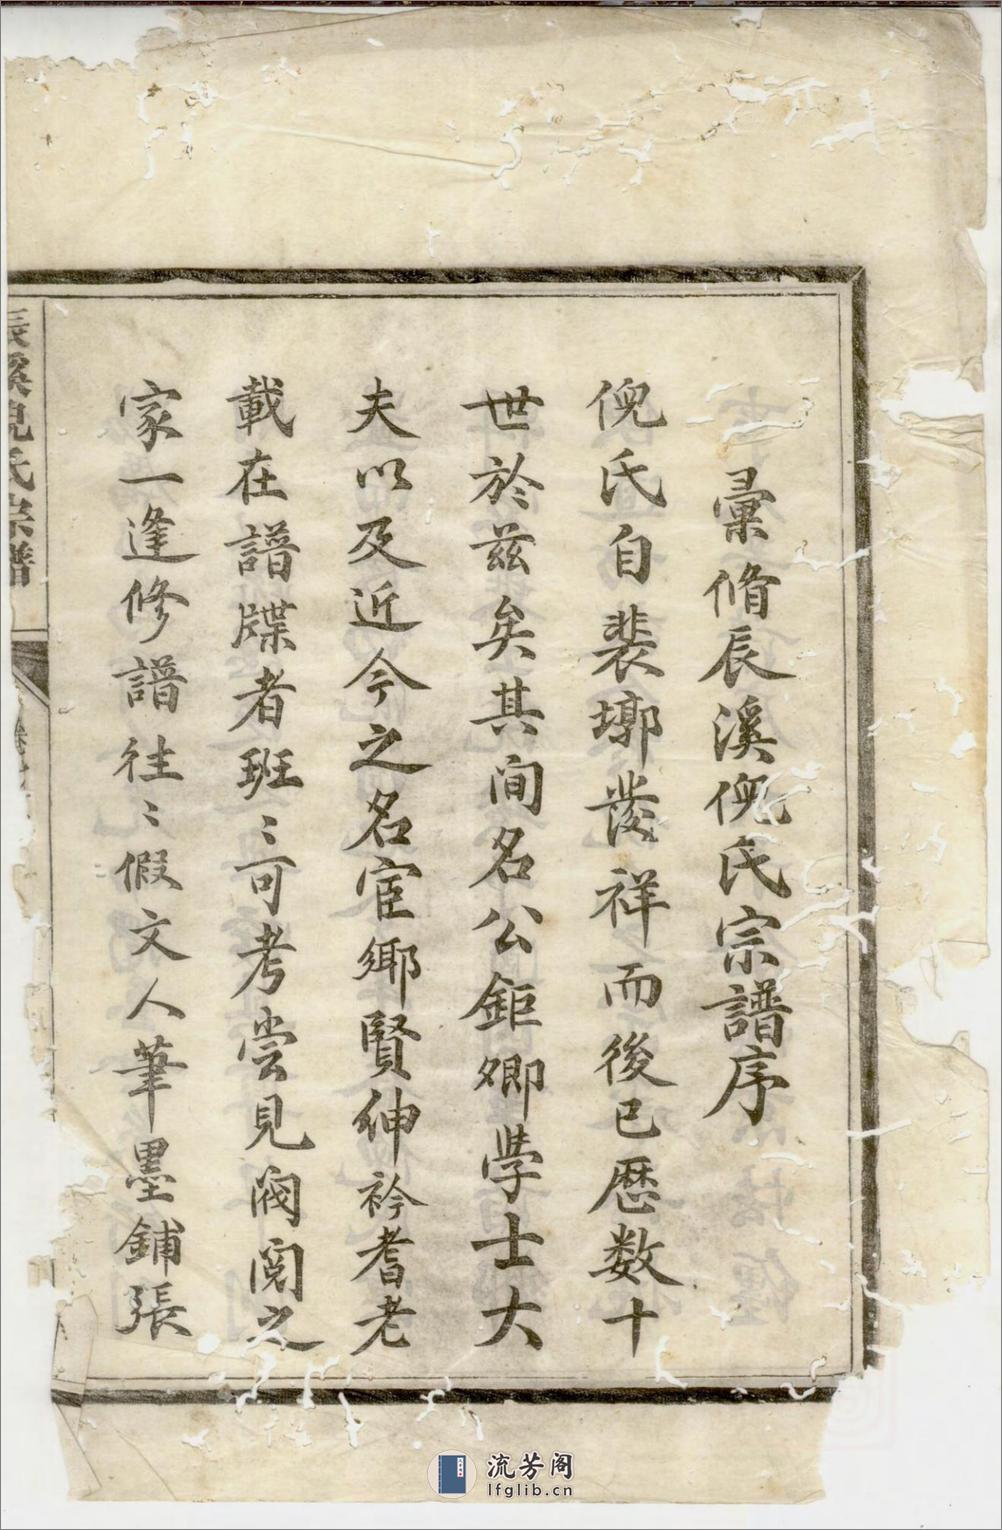 彙脩辰溪倪氏宗譜序
倪氏自裴墎發祥而後已歷数十
世於兹矣其间名公鉅卿学士大
夫以及近今之名宦鄉賢绅衿耆老
載在譜牒者班〻可考尝見阀阅之
家一逢修譜往〻假文人筆墨鋪張
辰溪倪氏宗譜
流芳阁
lfglib.cn